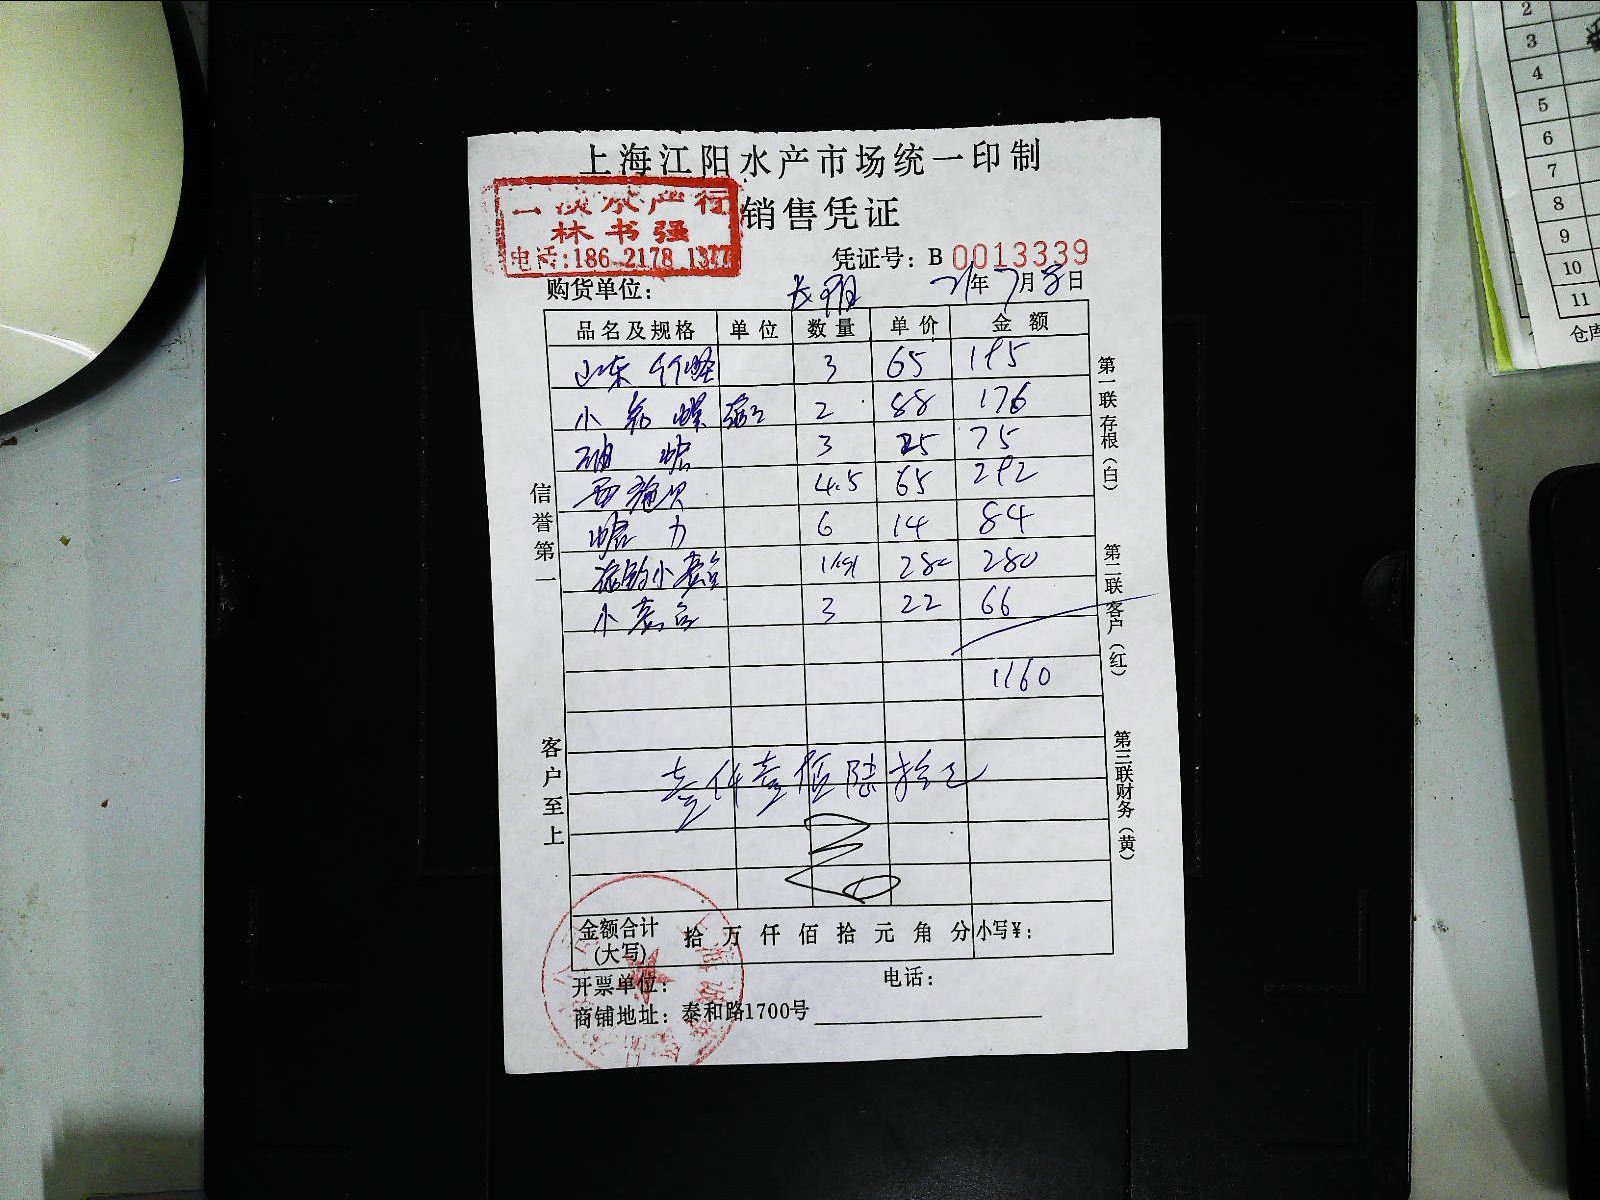 上海江阳水产市场统一印制
水产行
销售凭证
林书强
凭证号：B 0013339
电话:186 2178 1377
购货单位： 21年7月8日
品名及规格 单位 数量 单价 金额
山东竹蛏 3 65 195
小 螺 2 88 176
蛤 3 25 75
西施贝 4.5 65 292
蛤力 6 14 84
活的小 1 280 280
小 3 22 66
1160
壹仟壹佰陆拾元
金额合计(大写) 拾 万 仟 佰 拾 元 角 分 小写¥：
开票单位： 电话：
商铺地址：泰和路1700号
信誉第一
客户至上
第一联存根（白）
第二联客户（红）
第三联财务（黄）
2
3
4
5
6
7
8
9
10
11
仓库